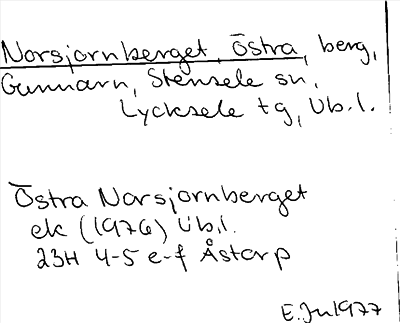 Norsjornberget, Östra, berg,
Gunnarn, Stensele sn,
Lycksele tg, Vb.l.
Östra Norsjornberget
ek (1976) Vb.l.
23H 4-5 e-f Åstorp
E.Ju 1977